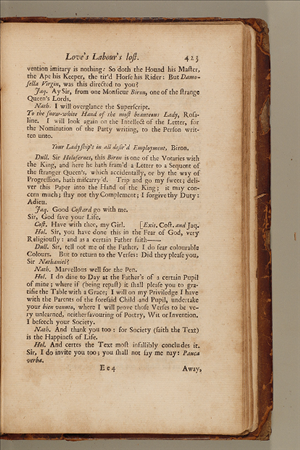 Love's Labour's lost. 423
vention imitary is nothing: So doth the Hound his Master,
the Ape his Keeper, the tir'd Horse his Rider: But Damo-
sella Virgin, was this directed to you?
Jaq. Ay Sir, from one Monsieur Biron, one of the strange
Queen's Lords.
Nath. I will overglance the Superscript.
To the snow-white Hand of the most beauteous Lady, Rosa-
line. I will look again on the Intellect of the Letter, for
the Nomination of the Party writing, to the Person writ-
ten unto.
Your Ladyship's in all desir'd Employment, Biron.
Dull. Sir Holofernes, this Biron is one of the Votaries with
the King, and here he hath fram'd a Letter to a Sequent of
the stranger Queen's, which accidentally, or by the way of
Progression, hath miscarry'd. Trip and go my sweet; deli-
ver this Paper into the Hand of the King; it may con-
cern much; stay not thy Complement; I forgive thy Duty:
Adieu.
Jaq. Good Costard go with me.
Sir, God save your Life.
Cost. Have with thee, my Girl. [Exit. Cost. and Jaq.
Hol. Sir, you have done this in the Fear of God, very
Religiously: and as a certain Father saith——
Dull. Sir, tell not me of the Father, I do fear colourable
Colours. But to return to the Verses: Did they please you,
Sir Nathaniel?
Nath. Marvellous well for the Pen.
Hol. I do dine to Day at the Father's of a certain Pupil
of mine; where if (being repast) it shall please you to gra-
tifie the Table with a Grace; I will on my Priviledge I have
with the Parents of the foresaid Child and Pupil, undertake
your bien vonuto, where I will prove those Verses to be ve-
ry unlearned, neither favouring of Poetry, Wit or Invention.
I beseech your Society.
Nath. And thank you too: for Society (saith the Text)
is the Happiness of Life.
Hol. And certes the Text most infallibly concludes it.
Sir, I do invite you too; you shall not say me nay: Pauca
verba.
E e 4 Away,